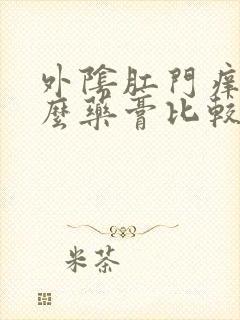 外陰肛門痒
麼藥膏比較
米茶